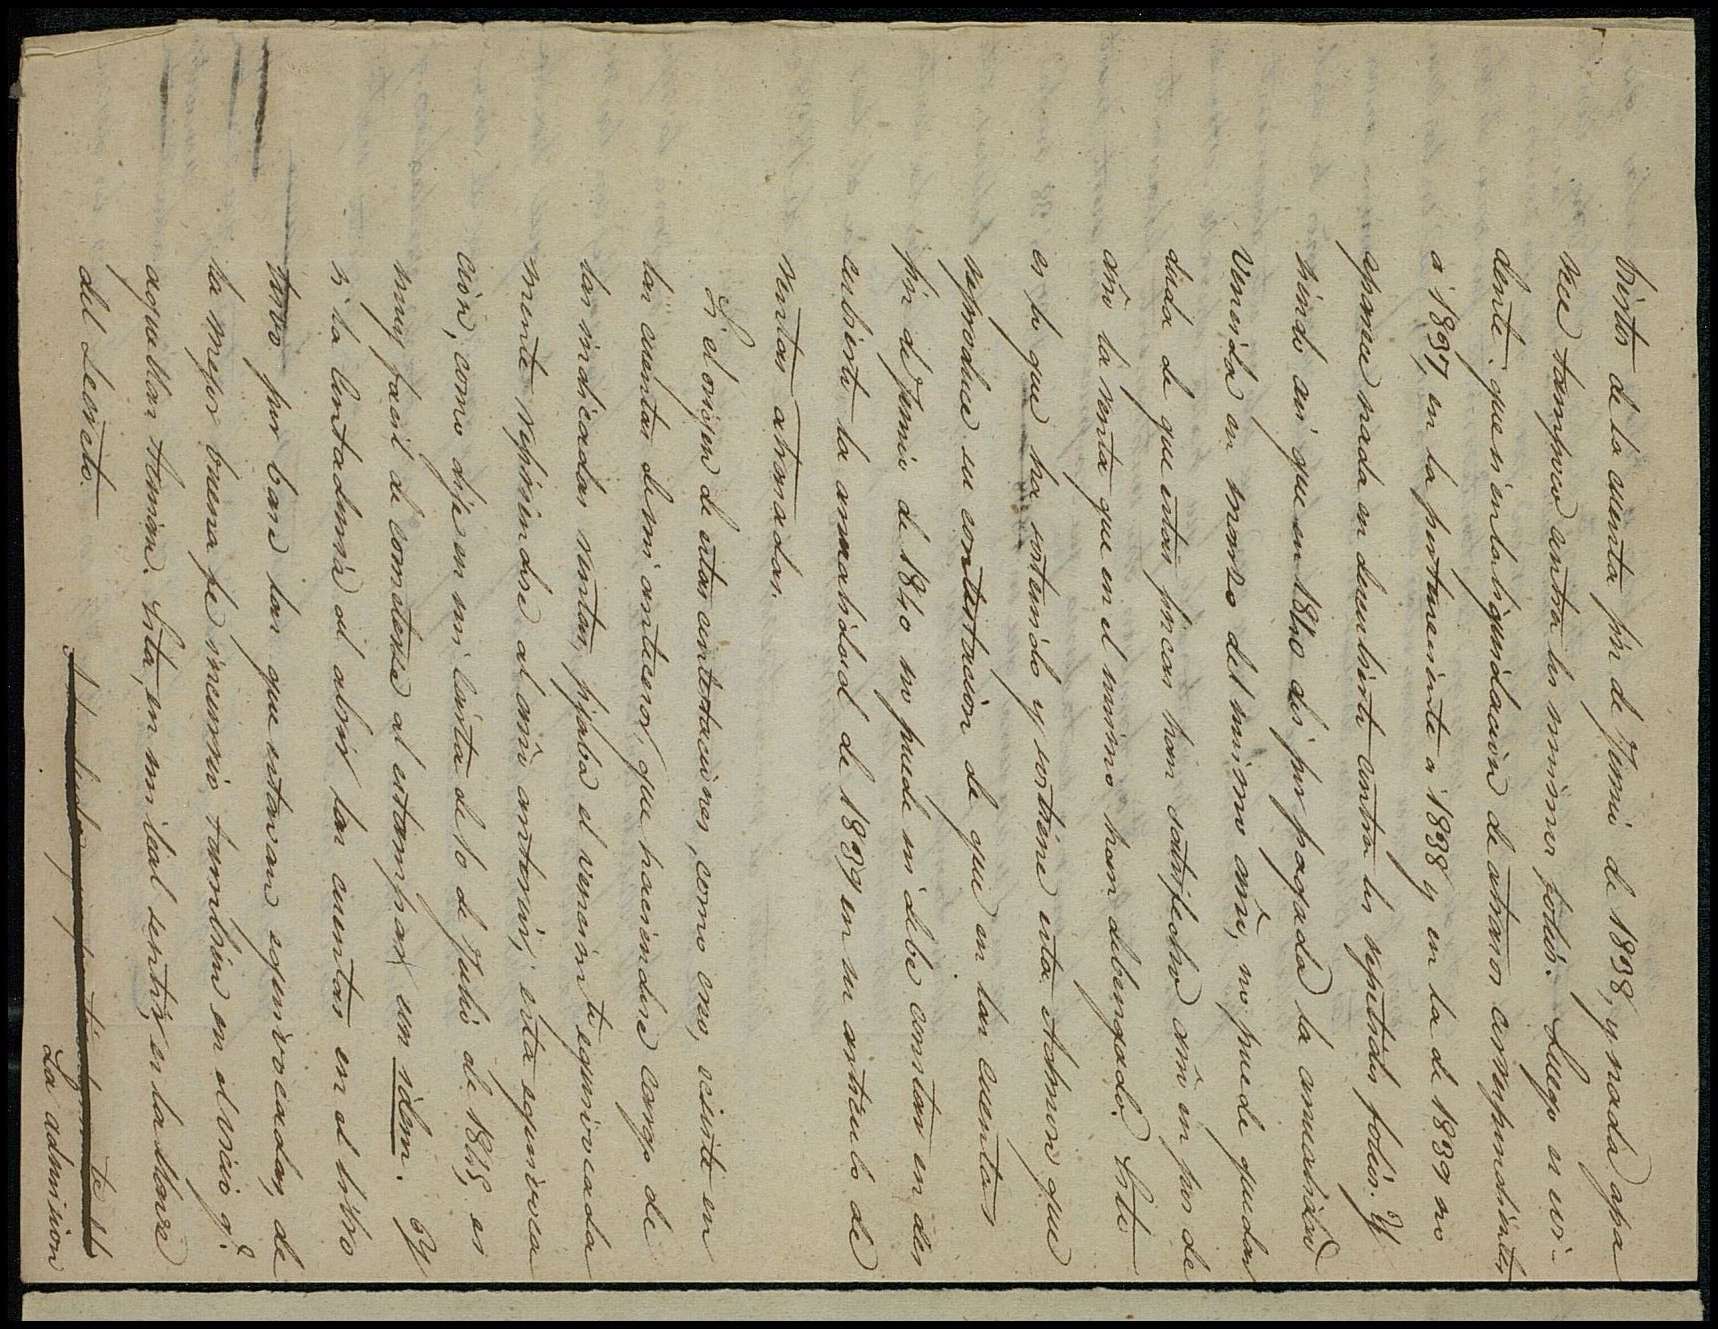 bientos de la cuenta fin de Junio de 1838, y nada apa
rece tampoco contra los mismos folios. Luego es evi-
dente que si en la liquidacion de atrasos correspondientes
a 1837, en la perteneciente a 1838 y en la de 1839 no
aparece nada en descubierto contra los repetidos folios. Y
siendo asi que en 1840 dio por pagada la anualidad
vencida en marzo del mismo año, no puede quedar
duda de que estas fincas han satisfecho año en pos de
año la renta que en el mismo han debengado. Esto
es lo que ha sostenido y sostiene esta Admon que
reproduce su contestacion de que en las cuentas
fin de Junio de 1840 no puede ni debe constar en des
cubierto la anualidad de 1839 en su articulo de
rentas atrasadas.
Si el origen de estas contestaciones, como creo, existe en
las cuentas de mi antecesor, que haciendose cargo de
las indicadas rentas, fijaba el vencimto equivocada
mente refiriendose al año anterior, esta equivoca
cion, como dije en mi carta de 10 de Julio de 1845, es
muy facil de cometerse al estampar un idem. Y
si la Contaduria al abrir las cuentas en el libro
tuvo por base las que estaban equivocadas, de
la mejor buena fe incurrió tambien en el vicio q.e
aquellas tenian. Esta, en mi leal sentir, es la llave
del secreto.
La admision